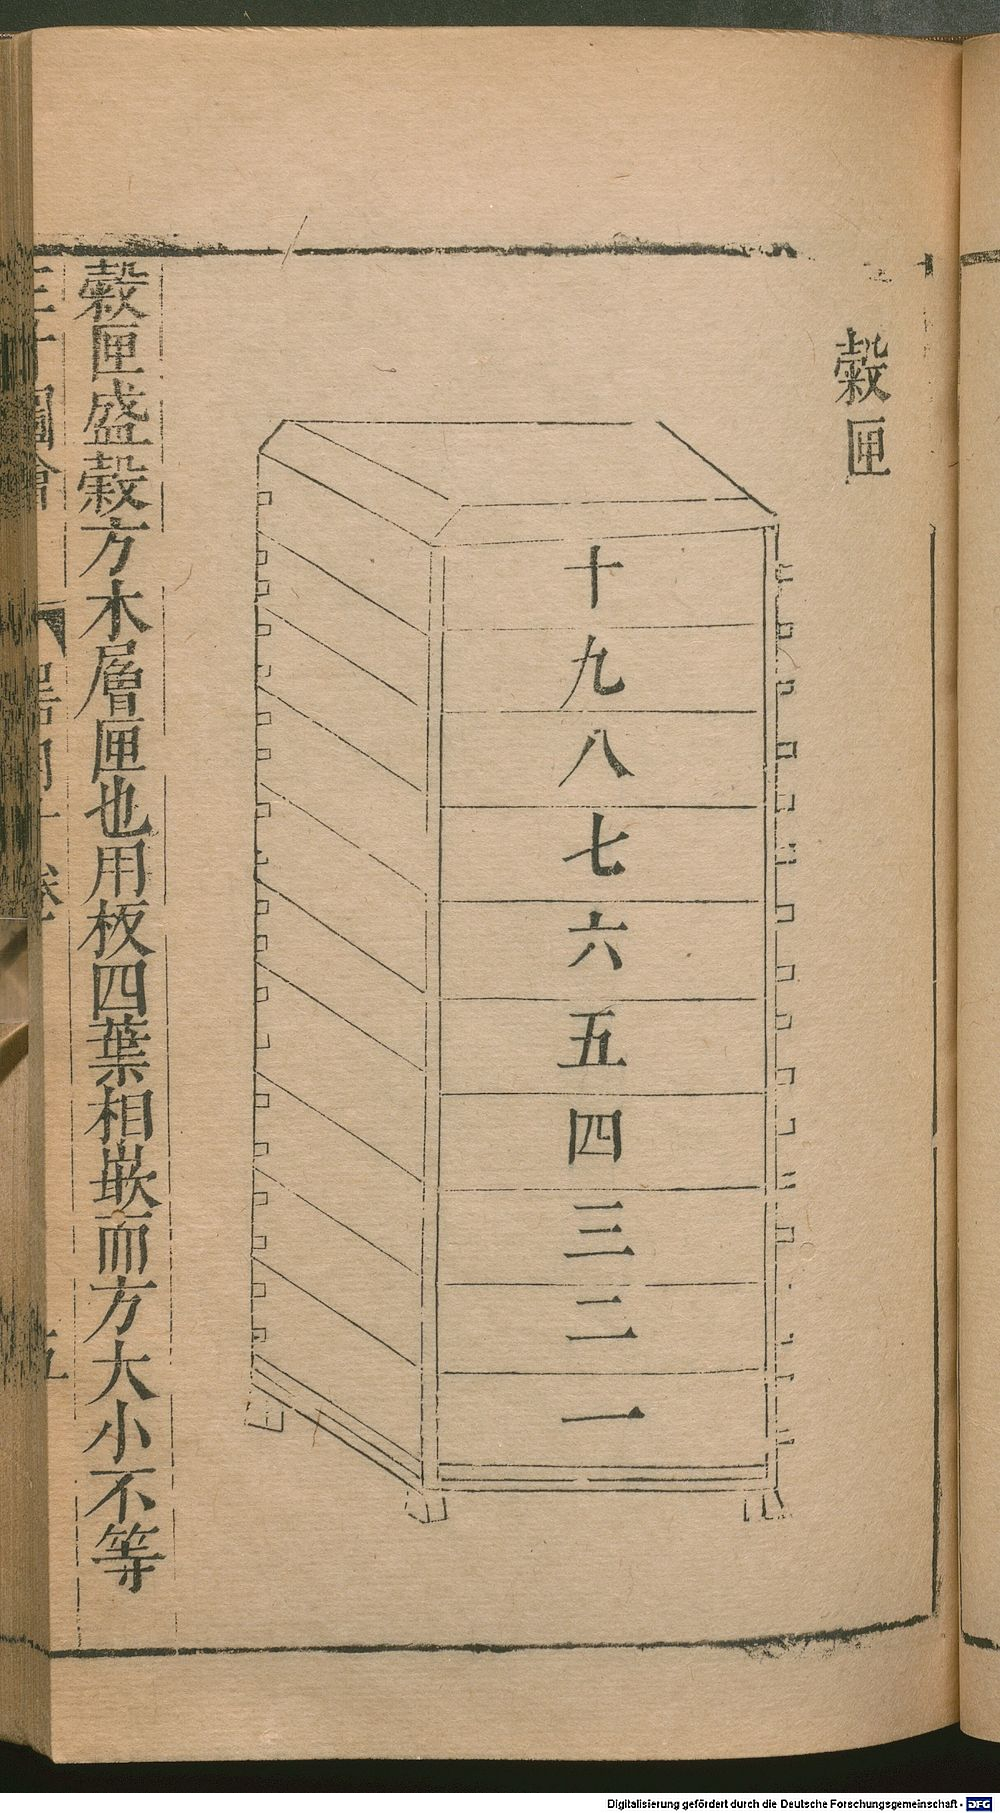 穀匣
十
九
八
七
六
五
四
三
二
一
穀匣盛穀方木層匣也用板四葉相嵌而方大小不等
三才圖會
器用十一卷
五
Digitalisierung gefördert durch die Deutsche Forschungsgemeinschaft - DFG